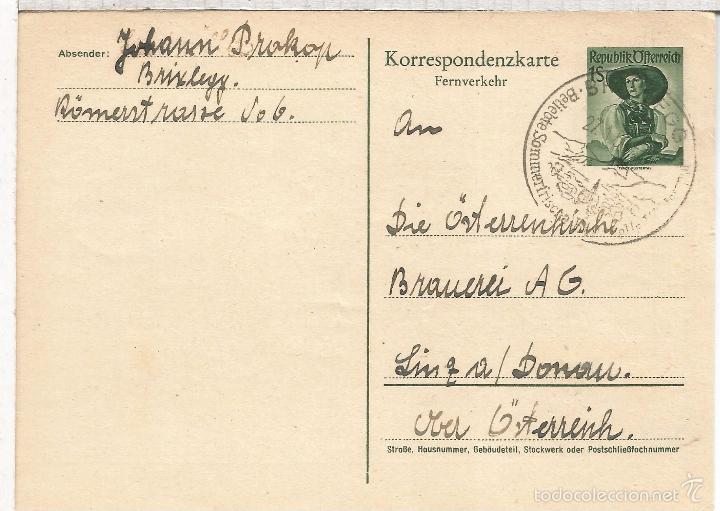 Absender: Johann Prokop
Brixlegg.
Römerstrasse No 6.
Korrespondenzkarte
Fernverkehr
Republik Österreich
1S
Beliebte Sommerfrische
An
Die Österreichische
Brauerei A G.
Linz a/Donau.
Ober Österreich.
Straße, Hausnummer, Gebäudeteil, Stockwerk oder Postschließfachnummer
todocoleccion.net